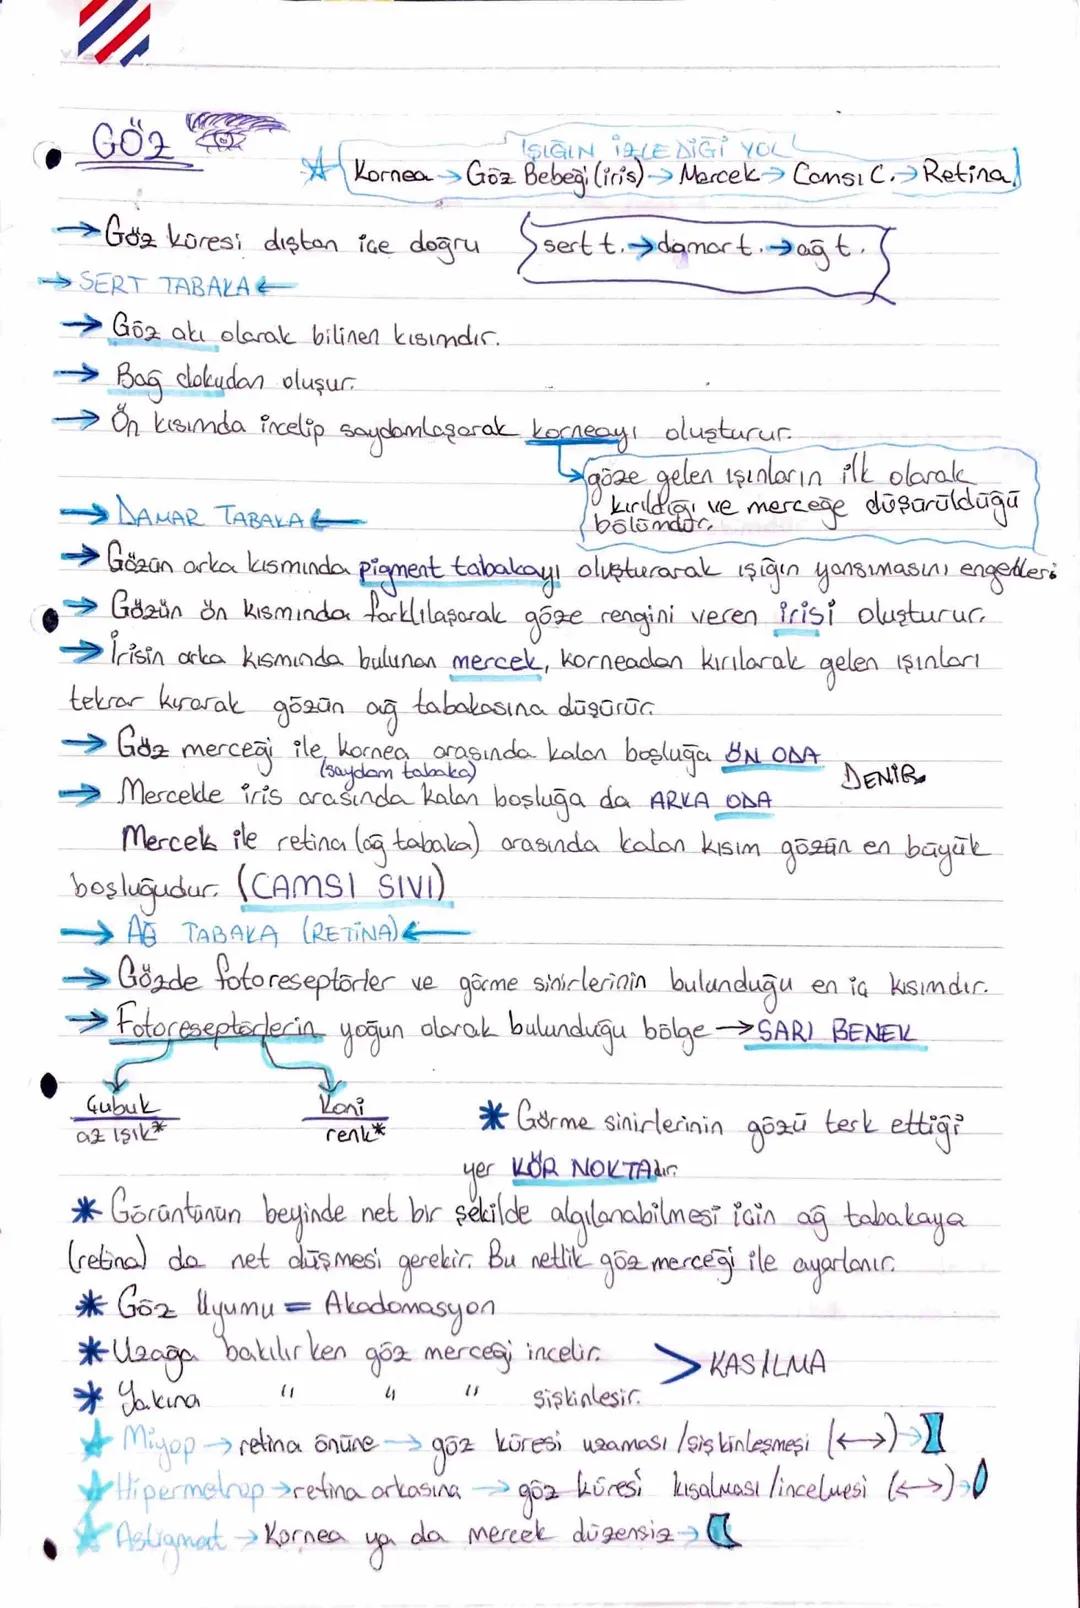 GÖZ
IŞIĞIN İZLEDİĞİ YOL
Kornea → Göz Bebeği (iris) → Mercek → Camsı C. → Retina
→ Göz küresi dıştan içe doğru sert t. → damar t. → ağ t.
→ SERT TABAKA ←
→ Göz akı olarak bilinen kısımdır.
→ Bağ dokudan oluşur.
→ Ön kısımda incelip saydamlaşarak korneayı oluşturur.
göze gelen ışınların ilk olarak
kırıldığı ve merceğe düşürüldüğü
bölümdür.
→ DAMAR TABAKA ←
→ Gözün arka kısmında pigment tabakayı oluşturarak ışığın yansımasını engeller
→ Gözün ön kısmında farklılaşarak göze rengini veren irisi oluşturur.
→ İrisin arka kısmında bulunan mercek, korneadan kırılarak gelen ışınları
tekrar kırarak gözün ağ tabakasına düşürür.
→ Göz merceği ile kornea arasında kalan boşluğa ÖN ODA
(saydam tabaka)
DENİR.
→ Mercekle iris arasında kalan boşluğa da ARKA ODA
Mercek ile retina (ağ tabaka) arasında kalan kısım gözün en büyük
boşluğudur. (CAMSI SIVI)
→ AĞ TABAKA (RETİNA) ←
→ Gözde fotoreseptörler ve görme sinirlerinin bulunduğu en iç kısımdır.
→ Fotoreseptörlerin yoğun olarak bulunduğu bölge → SARI BENEK
Çubuk
az ışık*
Koni
renk*
* Görme sinirlerinin gözü terk ettiği
yer KÖR NOKTAdır.
* Görüntünün beyinde net bir şekilde algılanabilmesi için ağ tabakaya
(retina) da net düşmesi gerekir. Bu netlik göz merceği ile ayarlanır.
* Göz Uyumu = Akadomasyon
* Uzağa bakılırken göz merceği incelir.
> KASILMA
* Yakına " " " şişkinleşir.
Miyop → retina önüne → göz küresi uzaması / şişkinleşmesi (↔) →
Hipermetrop → retina arkasına → göz küresi kısalması / incelmesi (↔) →
Astigmat → Kornea ya da mercek düzensiz →